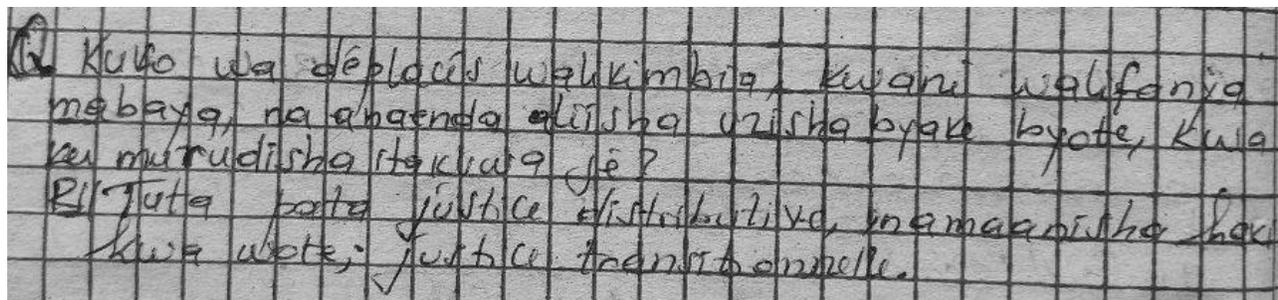 Q/ Kuko wa déplacés walikimbia, kwani walifania
mabaya, na anaenda aliisha uzisha byake byote, kwa
ku murudisha itakuwa je?
R/ Tuta pata justice distributive, inamaanisha haki
kwa wote, justice transitionnelle.